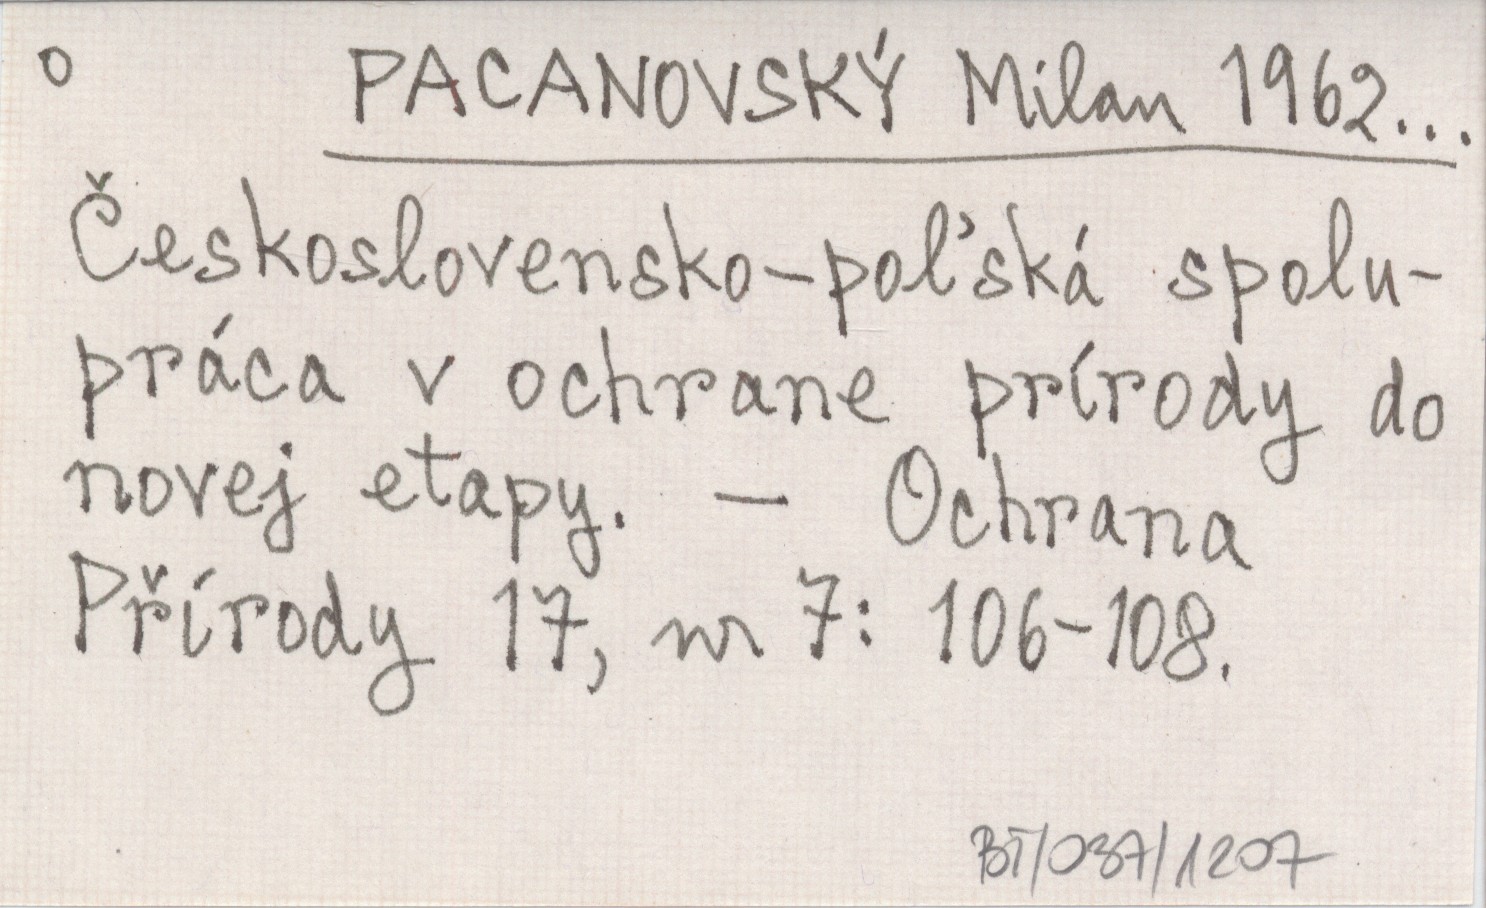 o PACANOVSKÝ Milan 1962...
Československo-poľská spolu-
práca v ochrane prírody do
novej etapy. — Ochrana
Přírody 17, nr 7: 106-108.
BT/037/1207